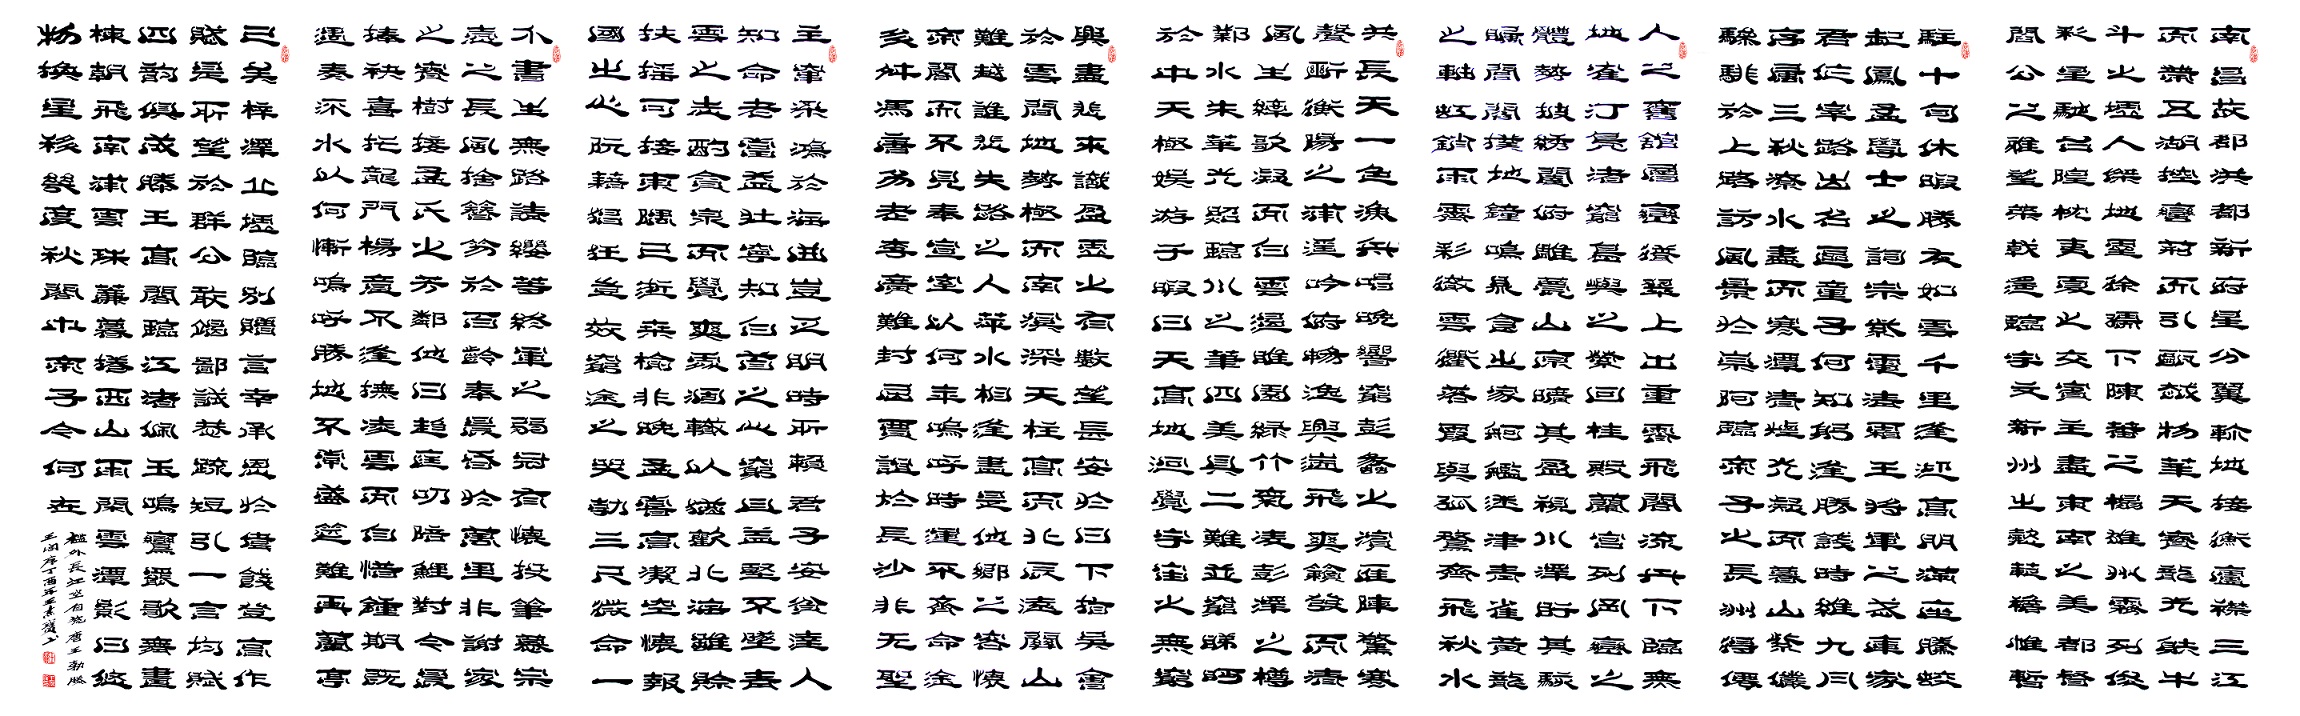 南昌故都洪都新府星分翼軫地接衡廬襟三江
而帶五湖控蠻荊而引甌越物華天寶龍光射牛
斗之墟人傑地靈徐孺下陳蕃之榻雄州霧列俊
彩星馳台隍枕夷夏之交賓主盡東南之美都督
閻公之雅望棨戟遥臨宇文新州之懿範襜惟暫
駐十旬休暇勝友如雲千里逢迎高朋滿座騰蛟
起鳳孟學士之詞宗紫電清霜王將軍之武庫家
君作宰路出名區童子何知躬逢勝餞時維九月
序屬三秋潦水盡而寒潭清煙光凝而暮山紫儼
驂騑於上路訪風景於崇阿臨帝子之長洲得僊
人之舊館層巒聳翠上出重霄飛閣流丹下臨無
地鶴汀鳧渚窮島嶼之縈回桂殿蘭宮列岡巒之
體勢披繡闥俯雕甍山原曠其盈視川澤盱其駭
矚閭閻撲地鐘鳴鼎食之家舸艦迷津青雀黃龍
之軸虹銷雨霽彩徹雲衢落霞與孤鶩齊飛秋水
共長天一色漁舟唱晚響窮彭蠡之濱雁陣驚寒
聲斷衡陽之浦遥吟俯暢逸興遄飛爽籟發而清
風生纖歌凝而白雲遏睢園綠竹氣凌彭澤之樽
鄴水朱華光照臨川之筆四美具二難並窮睇眄
於中天極娛游于暇日天高地迥覺宇宙之無窮
興盡悲來識盈虛之有數望長安於日下指吳會
於雲間地勢極而南溟深天柱高而北辰遠關山
難越誰悲失路之人萍水相逢盡是他鄉之客懷
帝閽而不見奉宣室以何年嗚呼時運不齊命途
多舛馮唐易老李廣難封屈賈誼於長沙非无聖
主竄梁鴻於海曲豈乏明時所賴君子安貧達人
知命老當益壯寧知白首之心窮且益堅不墜青
雲之志酌貪泉而覺爽處涸轍以猶歡北海雖賒
扶搖可接東隅已逝桑榆非晚孟嘗高潔空懷報
國之心阮籍猖狂豈效窮途之哭勃三尺微命一
介書生無路請纓等終軍之弱冠有懷投筆慕宗
愨之長風捨簪笏於百齡奉晨昏於萬里非謝家
之寶樹接孟氏之芳鄰他日趨庭叨陪鯉對今晨
捧袂喜托龍門楊意不逢撫凌雲而自惜鍾期既
遇奏流水以何慚嗚呼勝地不常盛筵難再蘭亭
已矣梓澤丘墟臨別贈言幸承恩於偉餞登高作
賦是所望於群公敢竭鄙誠恭疏短引一言均賦
四韻俱成滕王高閣臨江渚佩玉鳴鸞罷歌舞畫
棟朝飛南浦雲珠簾暮捲西山雨閑雲潭影日悠
物換星移幾度秋閣中帝子今何在
檻外長江空自流唐王勃滕
王閣序丁酉年